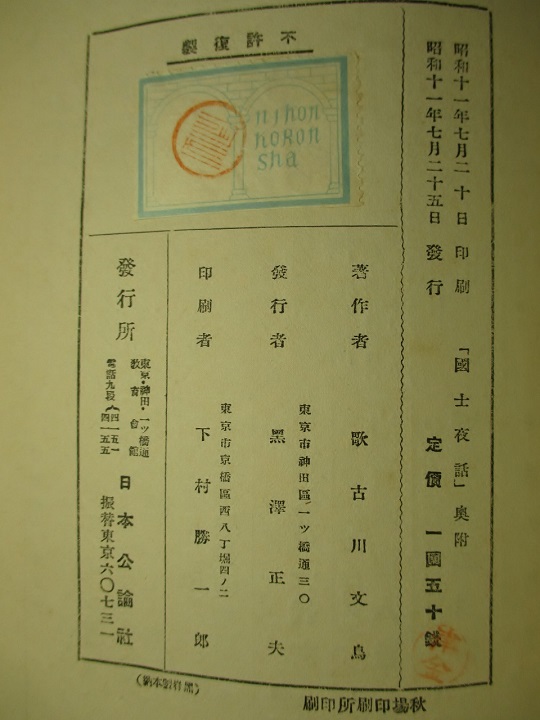 昭和十一年七月二十日印刷 「國士夜話」奧附
昭和十一年七月二十五日發行 定價 一圓五十錢
不許復製
nihon
koron
sha
著作者 歌古川文鳥
東京市神田區一ツ橋通三〇
發行者 黑澤正夫
東京市京橋區西八丁堀四ノ二
印刷者 下村勝一郎
發行所
東京・神田・一ツ橋通
教育會館
日本公論社
振替東京六〇七三一
秋場印刷所印刷